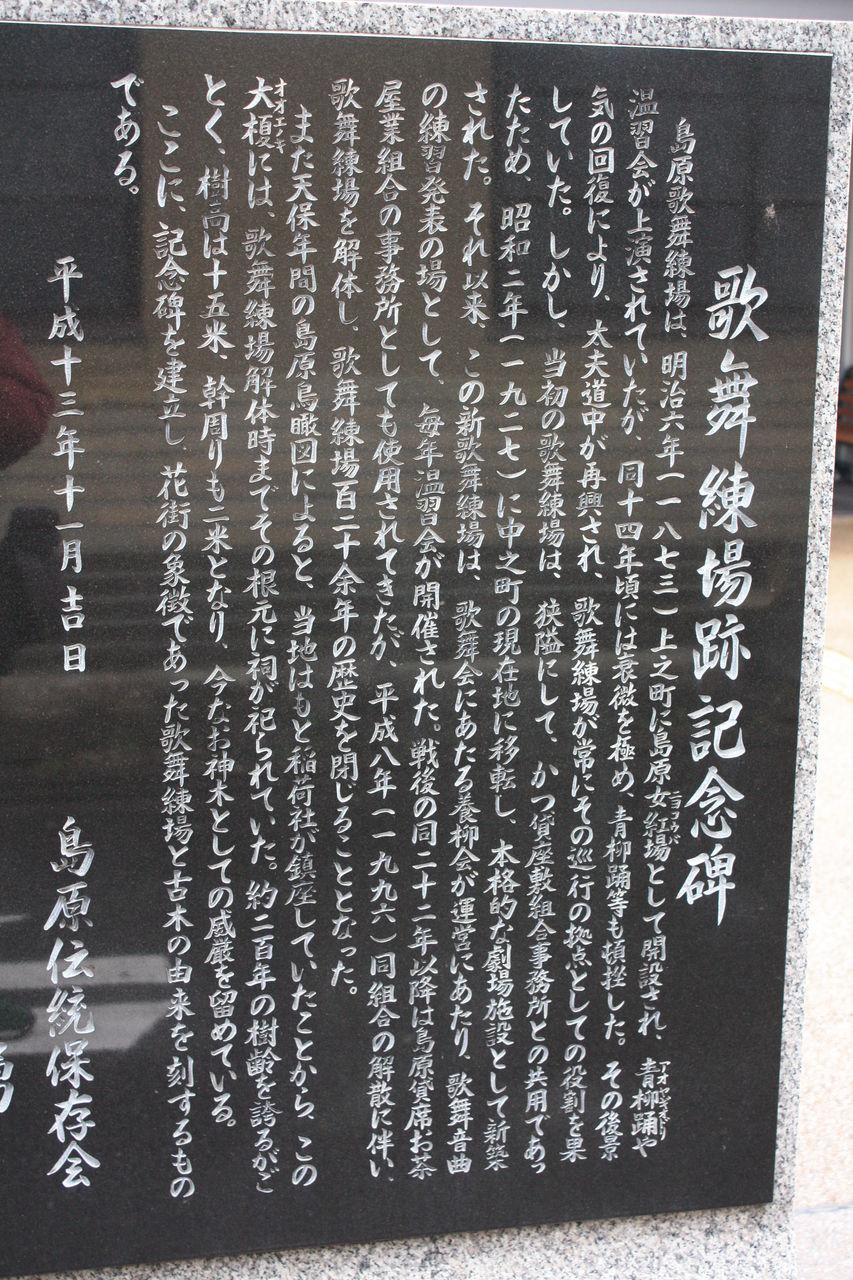 歌舞練場跡記念碑
島原歌舞練場は、明治六年（一八七三）上之町に島原女紅場として開設され、青柳踊や
ニヨコウバ
アオヤギオドリ
温習会が上演されていたが、同十四年頃には衰微を極め、青柳踊等も頓挫した。その後景
気の回復により、太夫道中が再興され、歌舞練場が常にその巡行の拠点としての役割を果
していた。しかし、当初の歌舞練場は、狭隘にして、かつ貸座敷組合事務所との共用であっ
たため、昭和二年（一九二七）に中之町の現在地に移転し、本格的な劇場施設として新築
された。それ以来、この新歌舞練場は、歌舞会にあたる養柳会が運営にあたり、歌舞音曲
の練習発表の場として、毎年温習会が開催された。戦後の同二十二年以降は島原貸席お茶
屋業組合の事務所としても使用されてきたが、平成八年（一九九六）同組合の解散に伴い、
歌舞練場を解体し、歌舞練場百二十余年の歴史を閉じることとなった。
また天保年間の島原鳥瞰図によると、当地はもと稲荷社が鎮座していたことから、この
大榎には、歌舞練場解体時までその根元に祠が祀られていた。約二百年の樹齢を誇るがご
オオエノキ
とく、樹高は十五米、幹周りも二米となり、今なお神木としての威厳を留めている。
ここに、記念碑を建立し、花街の象徴であった歌舞練場と古木の由来を刻するもの
である。
平成十三年十一月吉日
島原伝統保存会